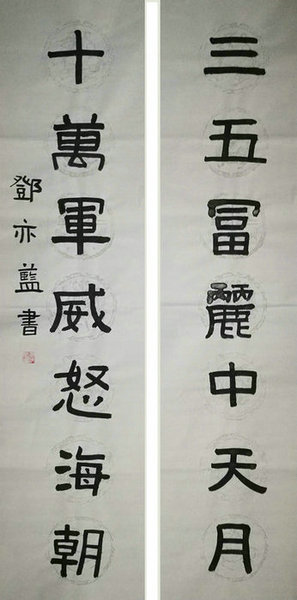 三五冨麗中天月
十萬軍威怒海朝
鄧亦藍書